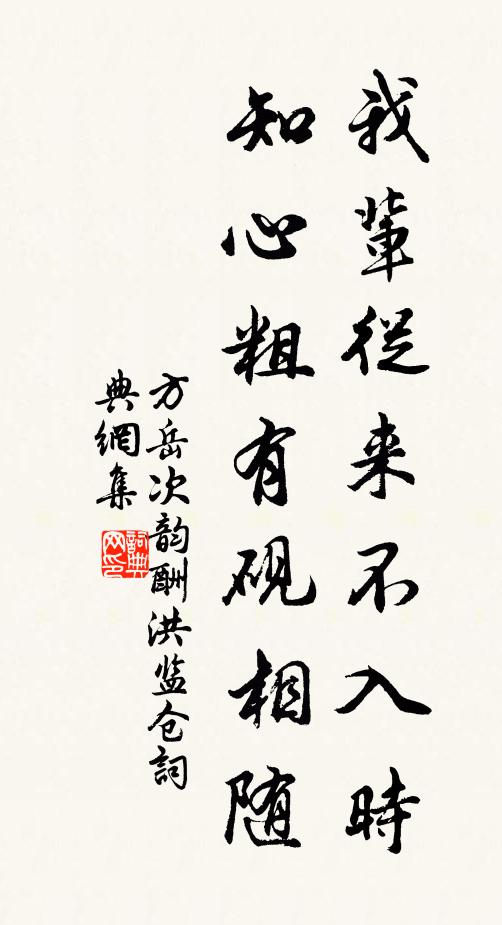 我輩從来不入時
知心粗有硯相随
方岳次韵酬洪监仓詞
典網集
詞典
网印